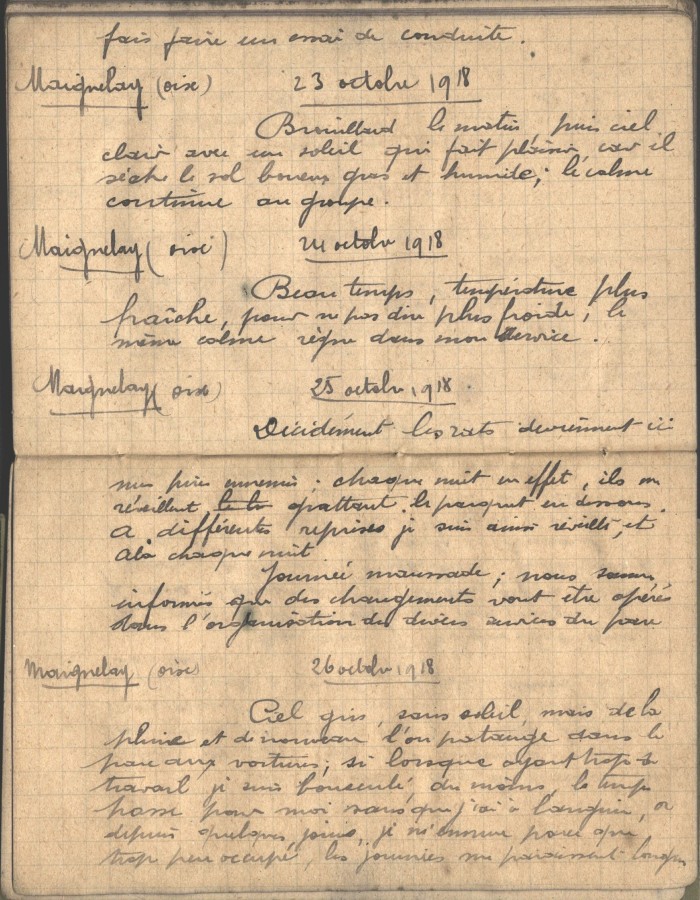 fais faire un essai de conduite.
Maignelay (oise) 23 octobre 1918
Brouillard le matin, puis ciel
clair avec un soleil qui fait plaisir, car il
sèche le sol boueux gras et humide; le calme
continue au groupe.
Maignelay (oise) 24 octobre 1918
Beau temps, température plus
fraîche, pour ne pas dire plus froide, le
même calme règne dans mon service.
Maignelay (oise) 25 octobre 1918.
Décidément les rats deviennent ici
mes pires ennemis; chaque nuit en effet, ils me
réveillent grattant le parquet en dessous.
A différentes reprises je suis ainsi réveillé, et
cela chaque nuit.
Journée maussade; nous sommes
informés que des changements vont être opérés
dans l'organisation des divers services du parc
Maignelay (oise) 26 octobre 1918
Ciel gris, sans soleil, mais de la
pluie et de nouveau l'on patauge dans le
parc aux voitures; si lorsque ayant trop de
travail je suis bousculé, du moins, le temps
passe pour moi sans que j'ai à languir, or
depuis quelques jours, je m'ennuie parce que
trop peu occupé, les journées me paraissent longues